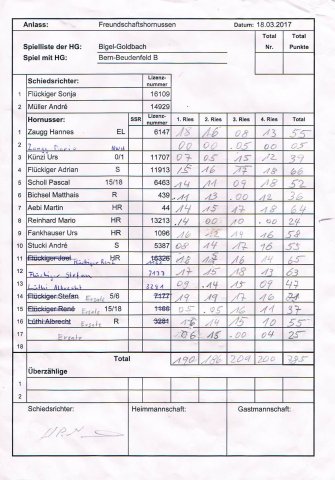 Anlass: Freundschaftshornussen Datum: 18.03.2017
Spielliste der HG: Bigel-Goldbach Total Total
Spiel mit HG: Bern-Beudenfeld B Nr. Punkte
Schiedsrichter: Lizenz-nummer
1 Flückiger Sonja 16109
2 Müller André 14929
Hornusser: SSR Lizenz-nummer 1. Ries 2. Ries 3. Ries 4. Ries Total
1 Zaugg Hannes EL 6147 18 16 08 13 55
2 00 00 05 00 05
3 Künzi Urs 0/1 11707 07 05 15 12 39
4 Flückiger Adrian S 11913 15 16 17 18 66
5 Scholl Pascal 15/18 6463 14 11 09 18 52
6 Bichsel Matthais R 439 11 13 00 12 36
7 Aebi Martin HR 44 14 15 17 18 64
8 Reinhard Mario HR 13213 14 00 10 00 24
9 Fankhauser Urs HR 1096 16 12 14 16 58
10 Stucki André S 5387 08 14 17 16 55
11 Flückiger Joel HR 16326 18 17 16 14 65
12 Flückiger Stefan 7177 17 15 18 13 63
13 Lüthi Albrecht 3281 09 14 15 09 47
14 Flückiger Stefan Ersatz 5/6 7177 19 19 17 16 71
15 Flückiger René Ersatz 15/18 1166 05 05 16 11 37
16 Lüthi Albrecht Ersatz R 3281 16 14 15 10 55
17 Ersatz 06 15 00 04 25
18
Total 190 209 200
Überzählige
1
2
Schiedsrichter: Heimmannschaft: Gastmannschaft: